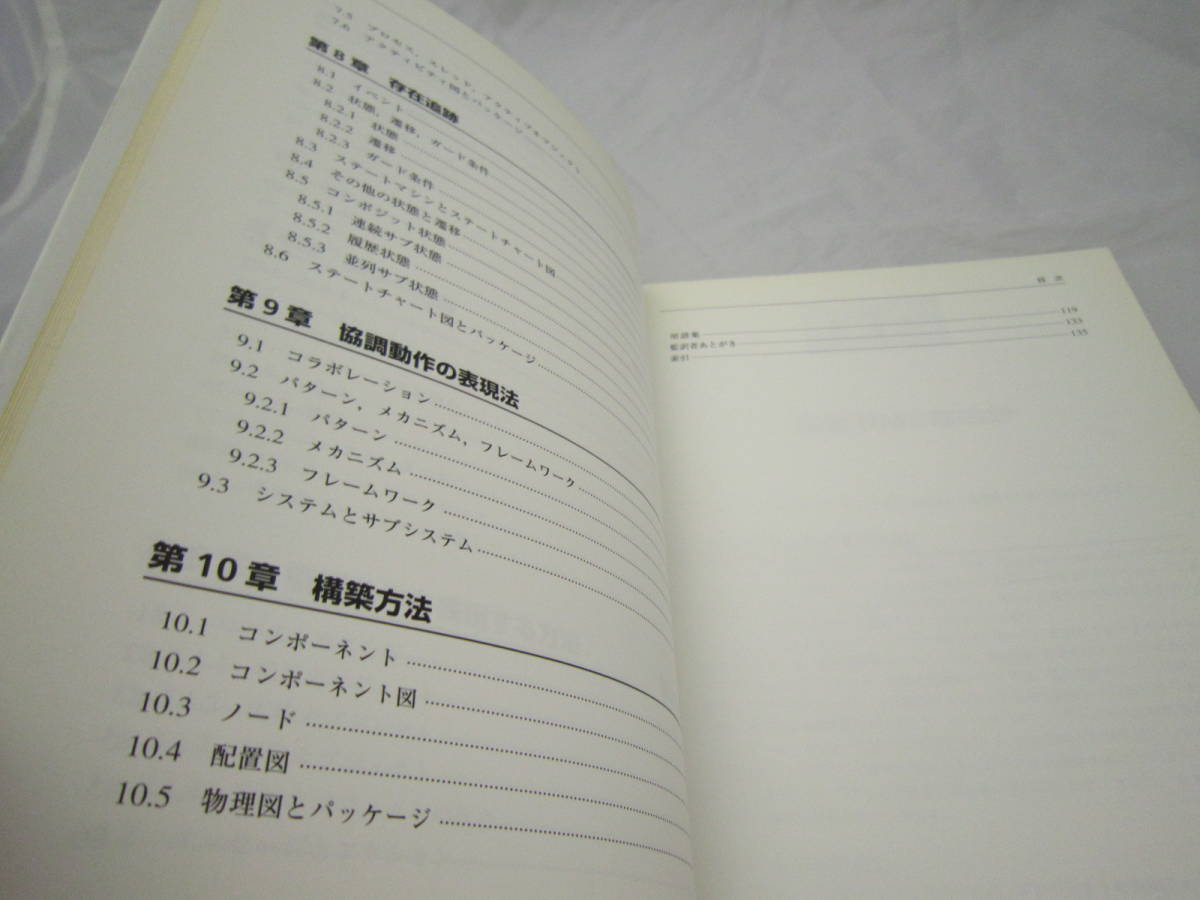 7.5 プロセス，スレッド，アクティブオブジェクト
7.6 アクティビティ図とパッケージ
第8章 存在追跡
8.1 イベント
8.2 状態，遷移，ガード条件
8.2.1 状態
8.2.2 遷移
8.2.3 ガード条件
8.3 ステートマシンとステートチャート図
8.4 その他の状態と遷移
8.5 コンポジット状態
8.5.1 連続サブ状態
8.5.2 履歴状態
8.5.3 並列サブ状態
8.6 ステートチャート図とパッケージ
第9章 協調動作の表現法
9.1 コラボレーション
9.2 パターン，メカニズム，フレームワーク
9.2.1 パターン
9.2.2 メカニズム
9.2.3 フレームワーク
9.3 システムとサブシステム
第10章 構築方法
10.1 コンポーネント
10.2 コンポーネント図
10.3 ノード
10.4 配置図
10.5 物理図とパッケージ
目次
用語集 119
監訳者あとがき 133
索引 135